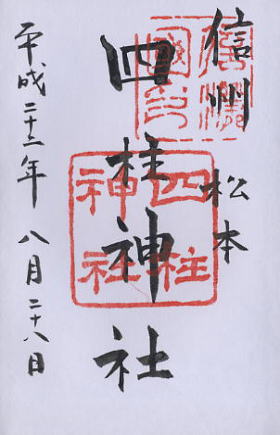 信州松本
四柱神社
四柱
神社
平成二十二年八月二十八日